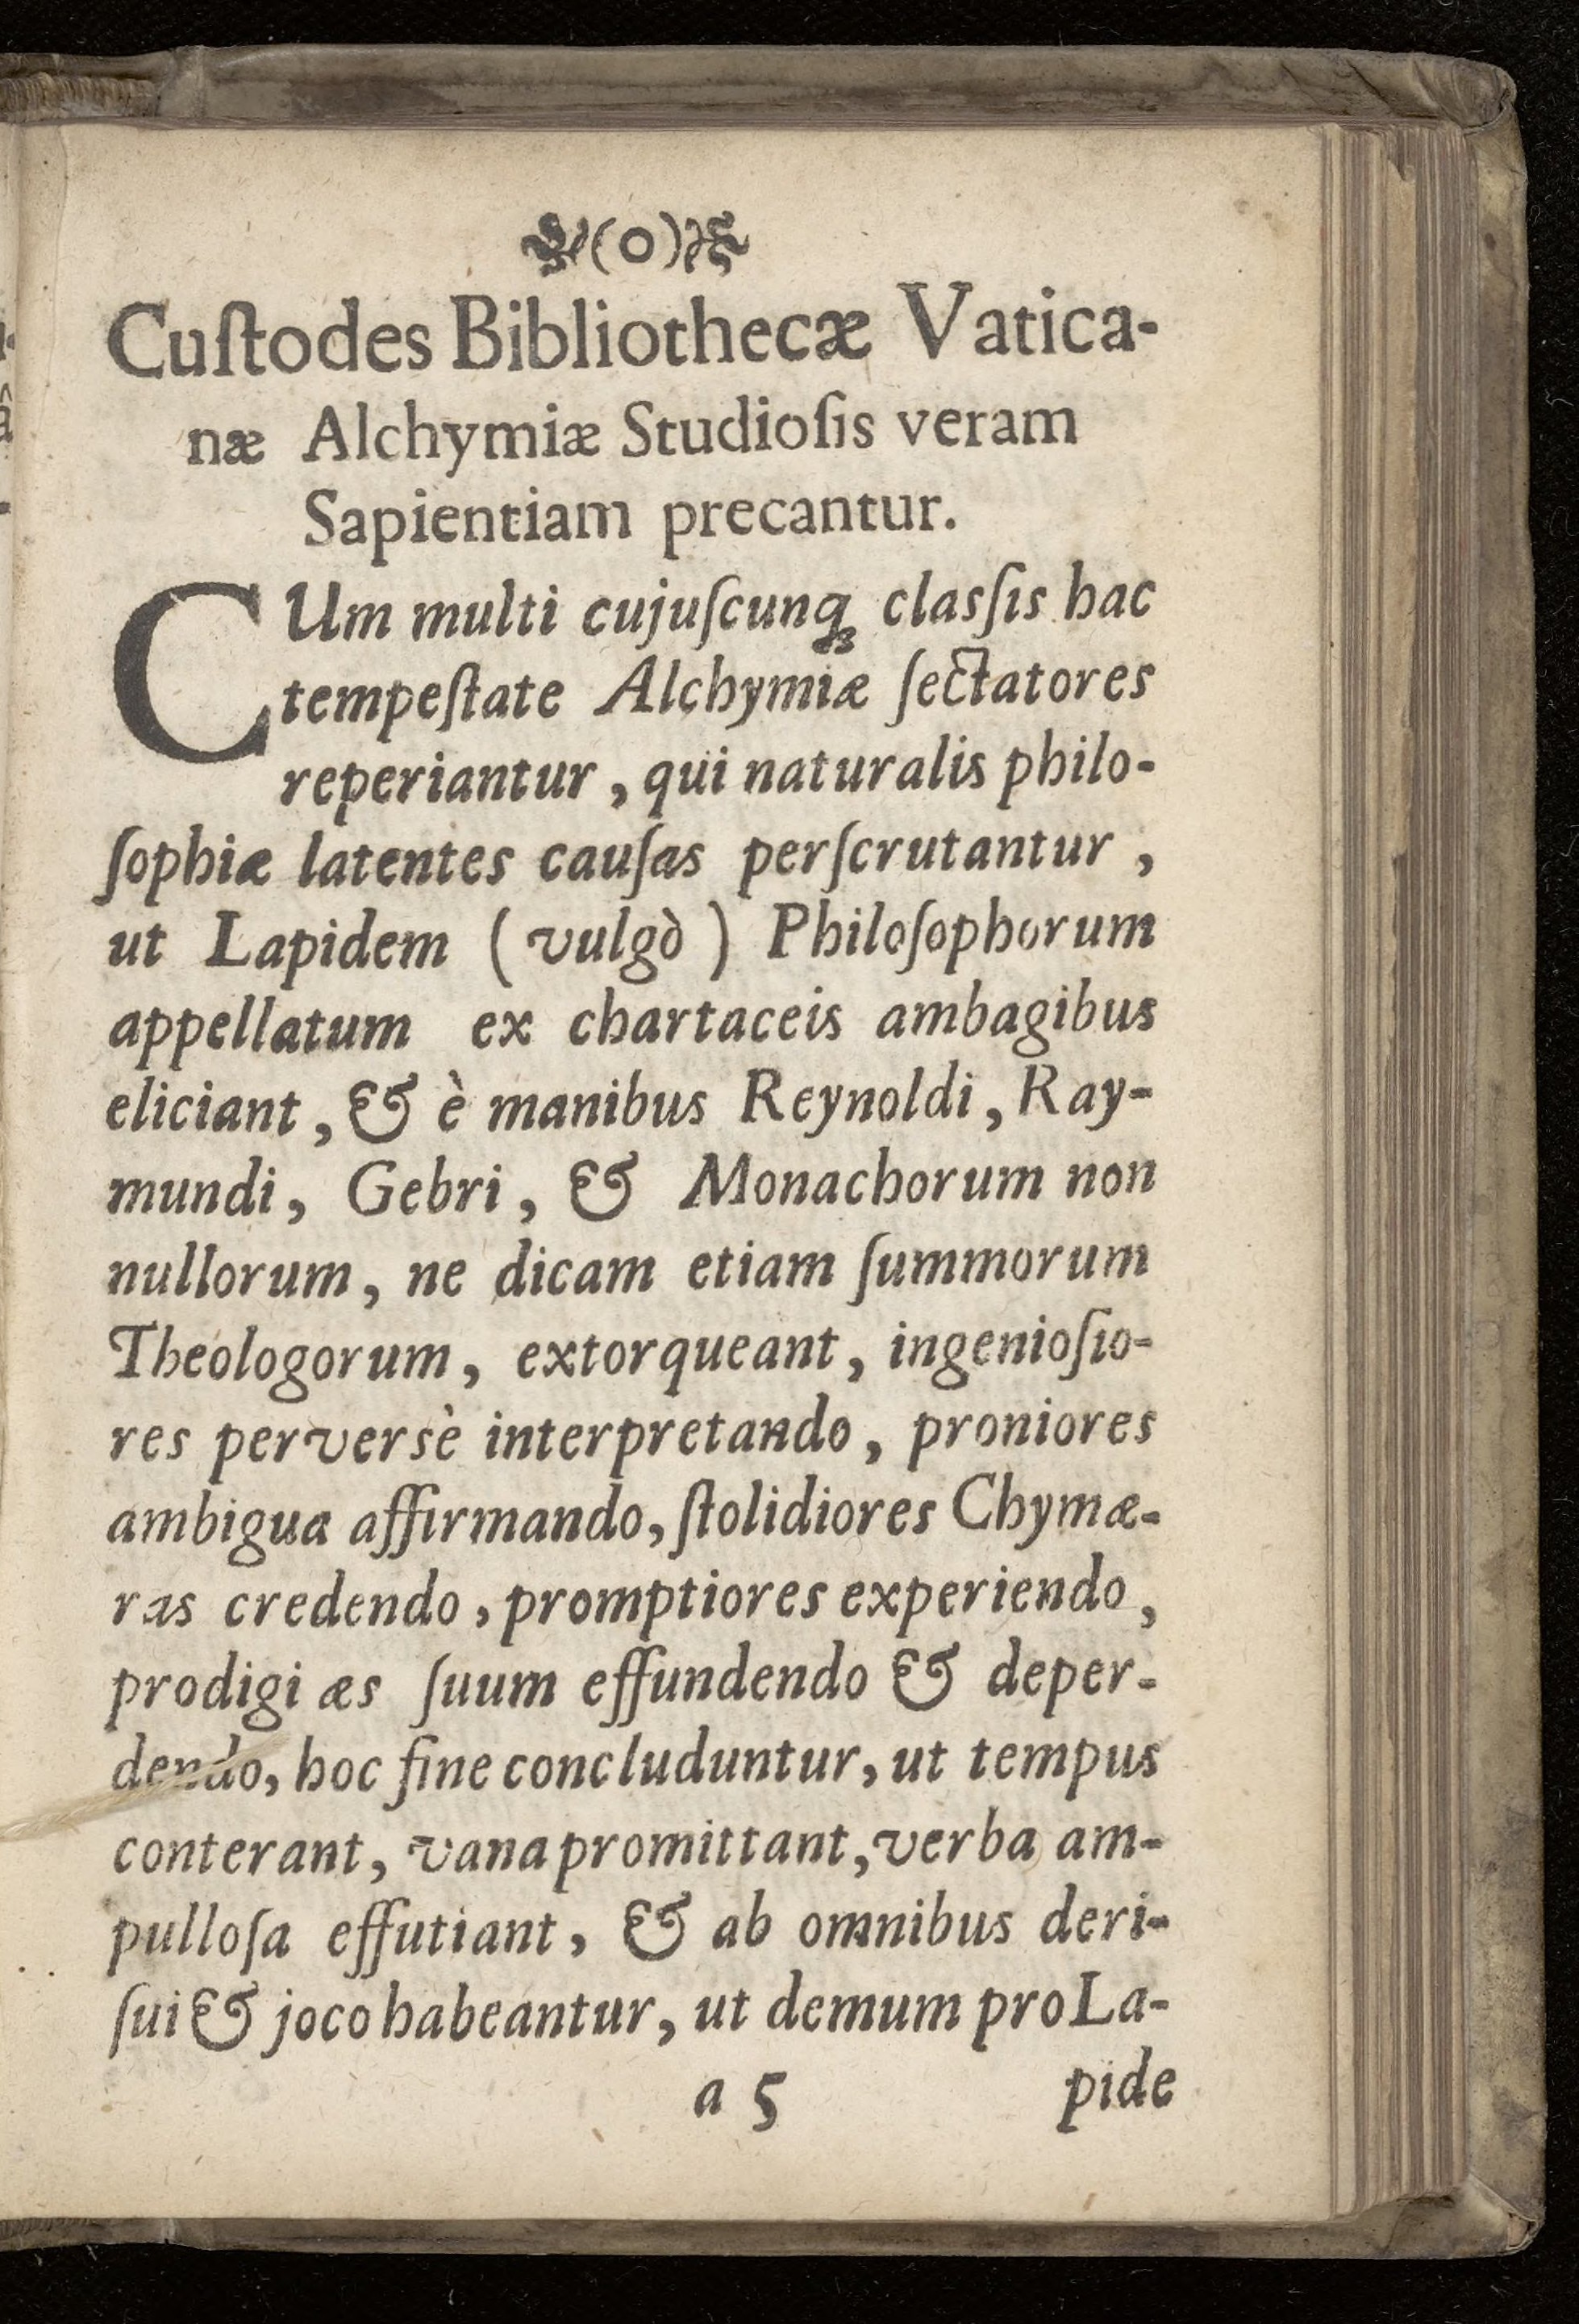 (O)
Cuſtodes Bibliothecæ Vatica-
næ Alchymiæ Studioſis veram
Sapientiam precantur.
CUm multi cujuſcunꝗ claſſis hac
tempeſtate Alchymiæ ſectatores
reperiantur, qui naturalis philo-
ſophiæ latentes cauſas perſcrutantur,
ut Lapidem (vulgò) Philoſophorum
appellatum ex chartaceis ambagibus
eliciant, & è manibus Reynoldi, Ray-
mundi, Gebri, & Monachorum non
nullorum, ne dicam etiam ſummorum
Theologorum, extorqueant, ingenioſio-
res perversè interpretando, proniores
ambigua affirmando, ſtolidiores Chymæ-
ras credendo, promptiores experiendo,
prodigi æs ſuum effundendo & deper-
dendo, hoc fine concluduntur, ut tempus
conterant, vana promittant, verba am-
pulloſa effutiant, & ab omnibus deri-
ſui & joco habeantur, ut demum pro La-
a 5 pide